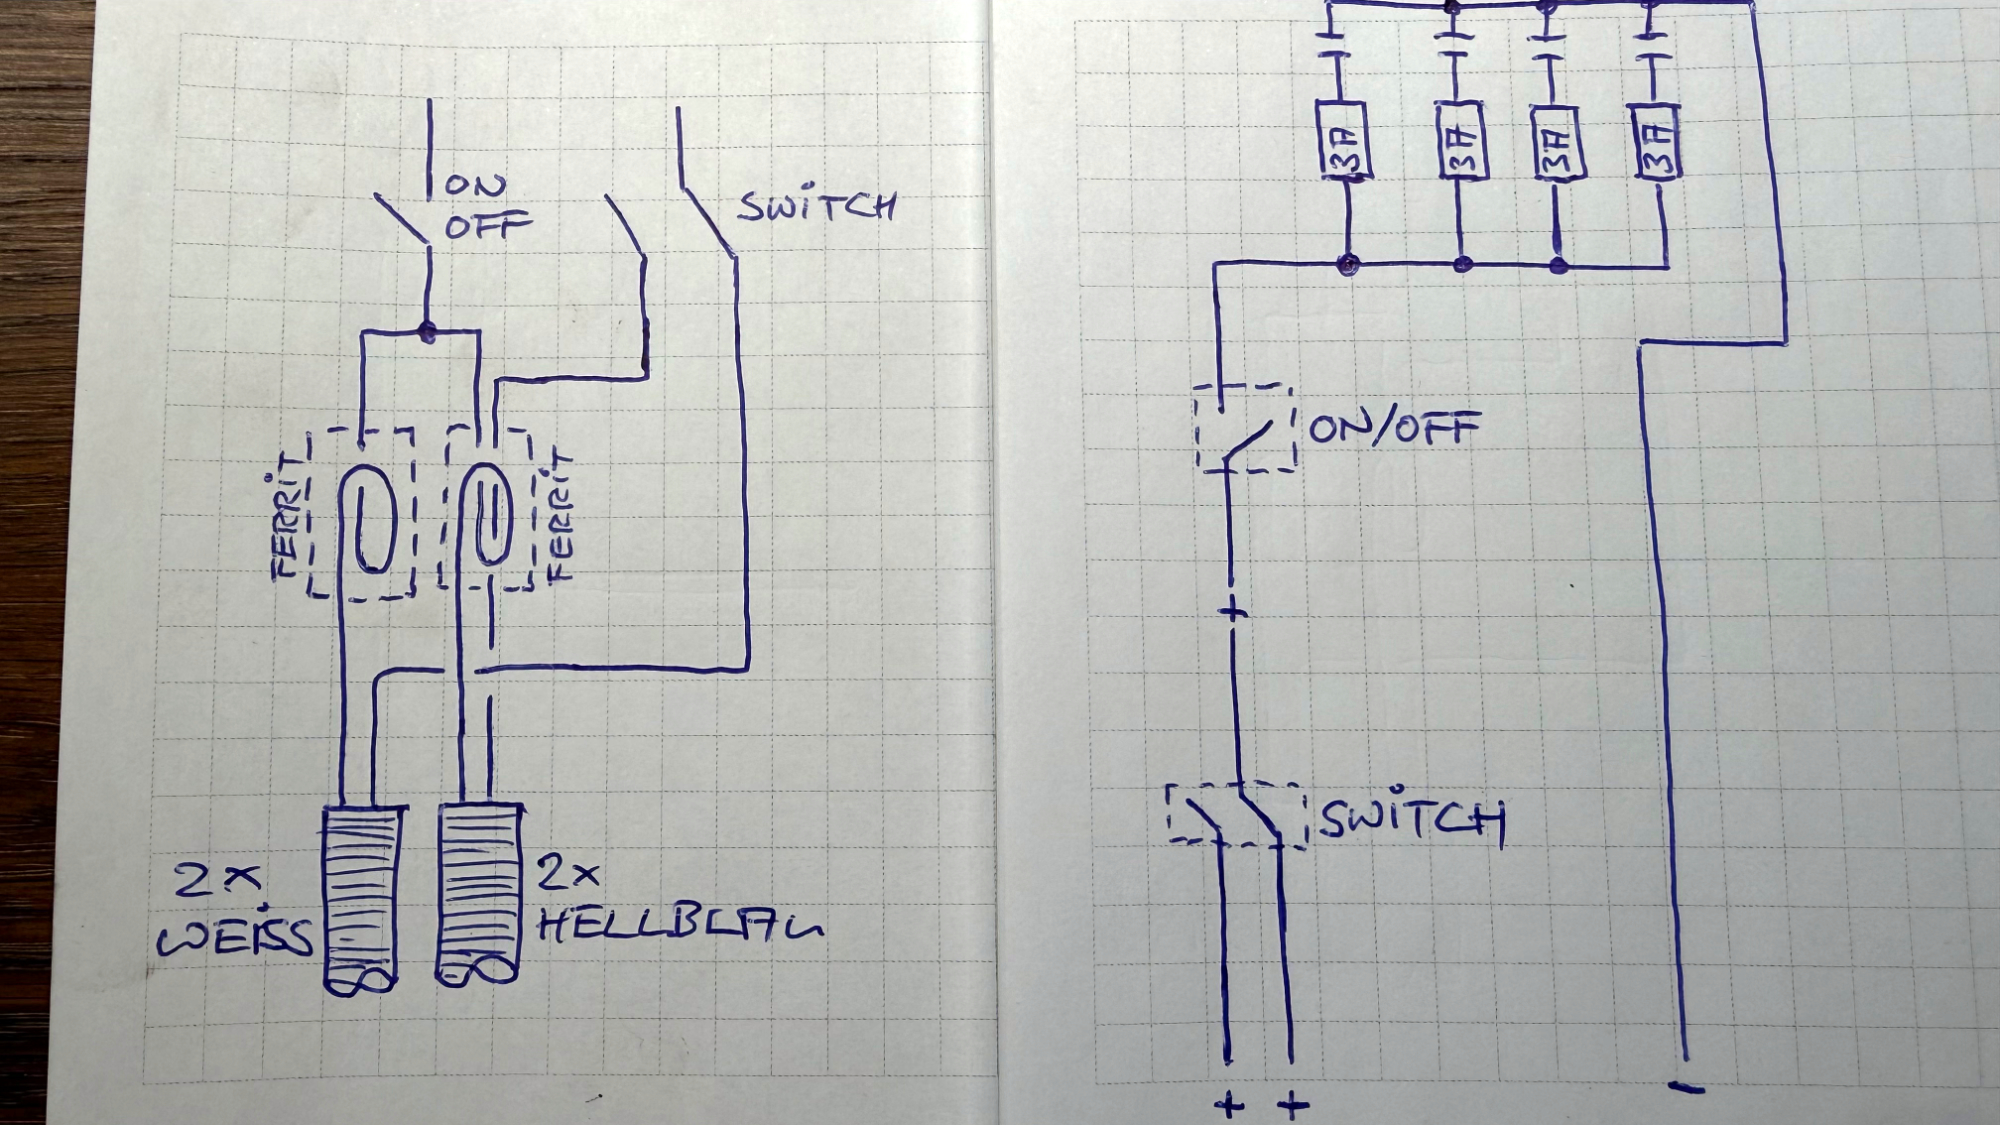 ON
OFF
SWiTCH
FERRiT
FERRiT
2x
WEiSS
2x
HELLBLAU
3A
3A
3A
3A
ON/OFF
+
SWiTCH
+ +
-